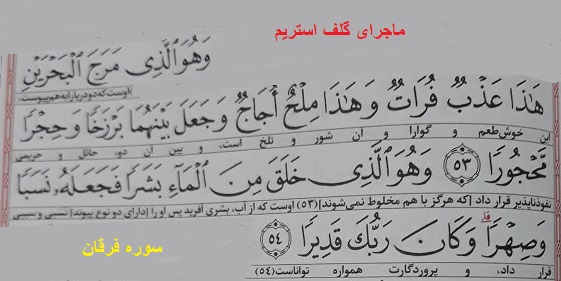 ماجرای گلف استریم
وَهُوَ ٱلَّذِي مَرَجَ ٱلۡبَحۡرَيۡنِ
اوست که دو دریا را به هم پیوست،
هَٰذَا عَذۡبٞ فُرَاتٞ وَهَٰذَا مِلۡحٌ أُجَاجٞ وَجَعَلَ بَيۡنَهُمَا بَرۡزَخٗا وَحِجۡرٗا
این خوش‌طعم و گوارا و آن شور و تلخ است، و بین آن دو، حائل و حریمی
مَّحۡجُورٗا ٥٣ وَهُوَ ٱلَّذِي خَلَقَ مِنَ ٱلۡمَآءِ بَشَرٗا فَجَعَلَهُۥ نَسَبٗا
نفوذناپذیر قرار داد [که هرگز با هم مخلوط نمی‌شوند] (۵۳) اوست که از آب، بشری آفرید پس او را [دارای دو نوع پیوند] نسبی و سببی
وَصِهۡرٗاۗ وَكَانَ رَبُّكَ قَدِيرٗا ٥٤
قرار داد، و پروردگارت همواره تواناست (۵۴)
سوره فرقان